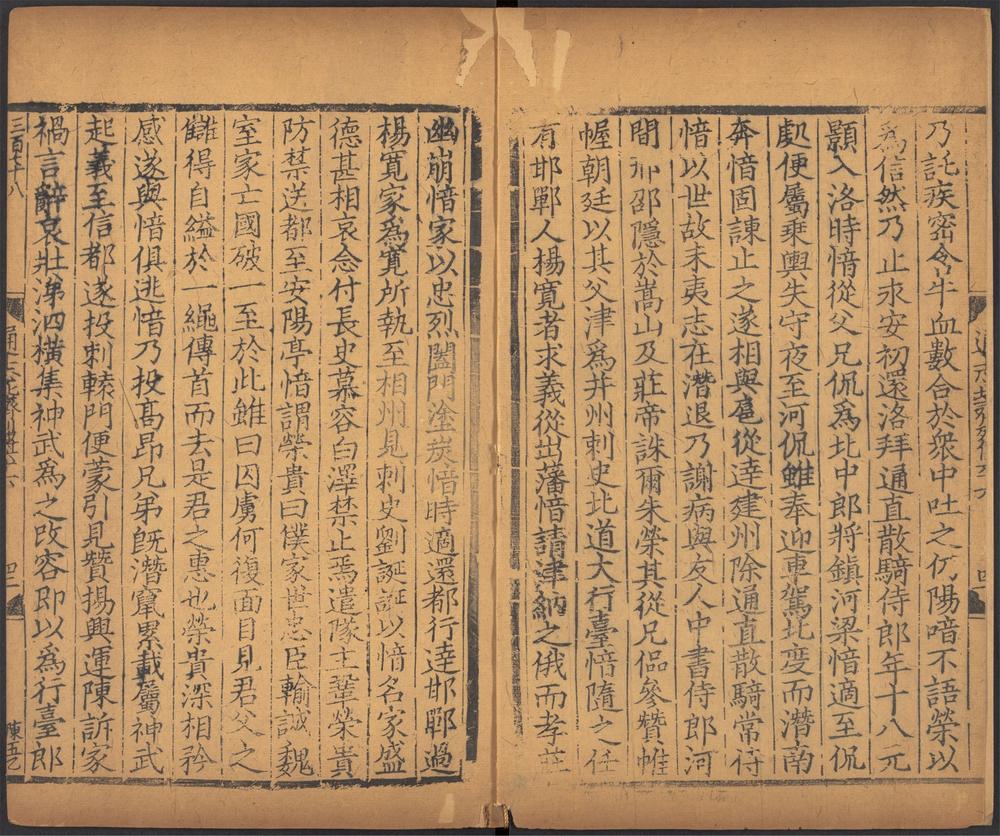 乃託疾密含牛血數合於衆中吐之仍陽喑不語榮以
爲信然乃止永安初還洛拜通直散騎侍郎年十八元
顥入洛時愔從父兄侃爲北中郎將鎮河梁愔適至侃
處便屬乗輿失守夜至河侃雖奉迎車駕北変而潛南
奔愔固諫止之遂相與扈從逹建州除通直散騎常侍
愔以世故未夷志在潛退乃謝病與友人中書侍郎河
間邢邵隱於嵩山及莊帝誅爾朱榮其從兄偘參贊帷
幄朝廷以其父津爲并州刺史北道大行臺愔隨之任
有邯鄲人楊寛者求義從出藩愔請津納之俄而孝莊
幽崩愔家以忠烈闔門塗炭愔時適還都行逹邯鄲過
楊寛家爲寛所執至相州見刺史劉誕誕以愔名家盛
德甚相哀念付長史慕容白澤禁止焉遣隊主鞏榮貴
防禁送都至安陽亭愔謂榮貴曰僕家世忠臣輸誠魏
室家亡國破一至於此雖曰囚虜何復面目見君父之
讎得自縊於一繩傳首而去是君之惠也榮貴深相矜
感遂與愔俱逃愔乃投髙昂兄弟旣潛竄累載屬神武
起義至信都遂投刺轅門便蒙引見贊揚興運陳訴家
禍言辭哀壯涕泗橫集神武爲之改容即以爲行臺郎
三百七十八